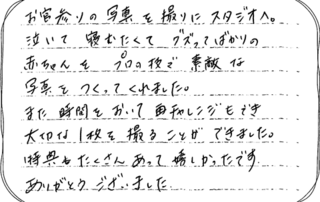 お宮参りの写真を撮りにスタジオへ。
泣いて寝むたくてグズってばかりの
赤ちゃんをプロの技で素敵な
写真をつくってくれました。
また時間をおいて再チャレンジもでき
大切な1枚を撮ることができました。
特典もたくさんあって嬉しかったです
ありがとうございました